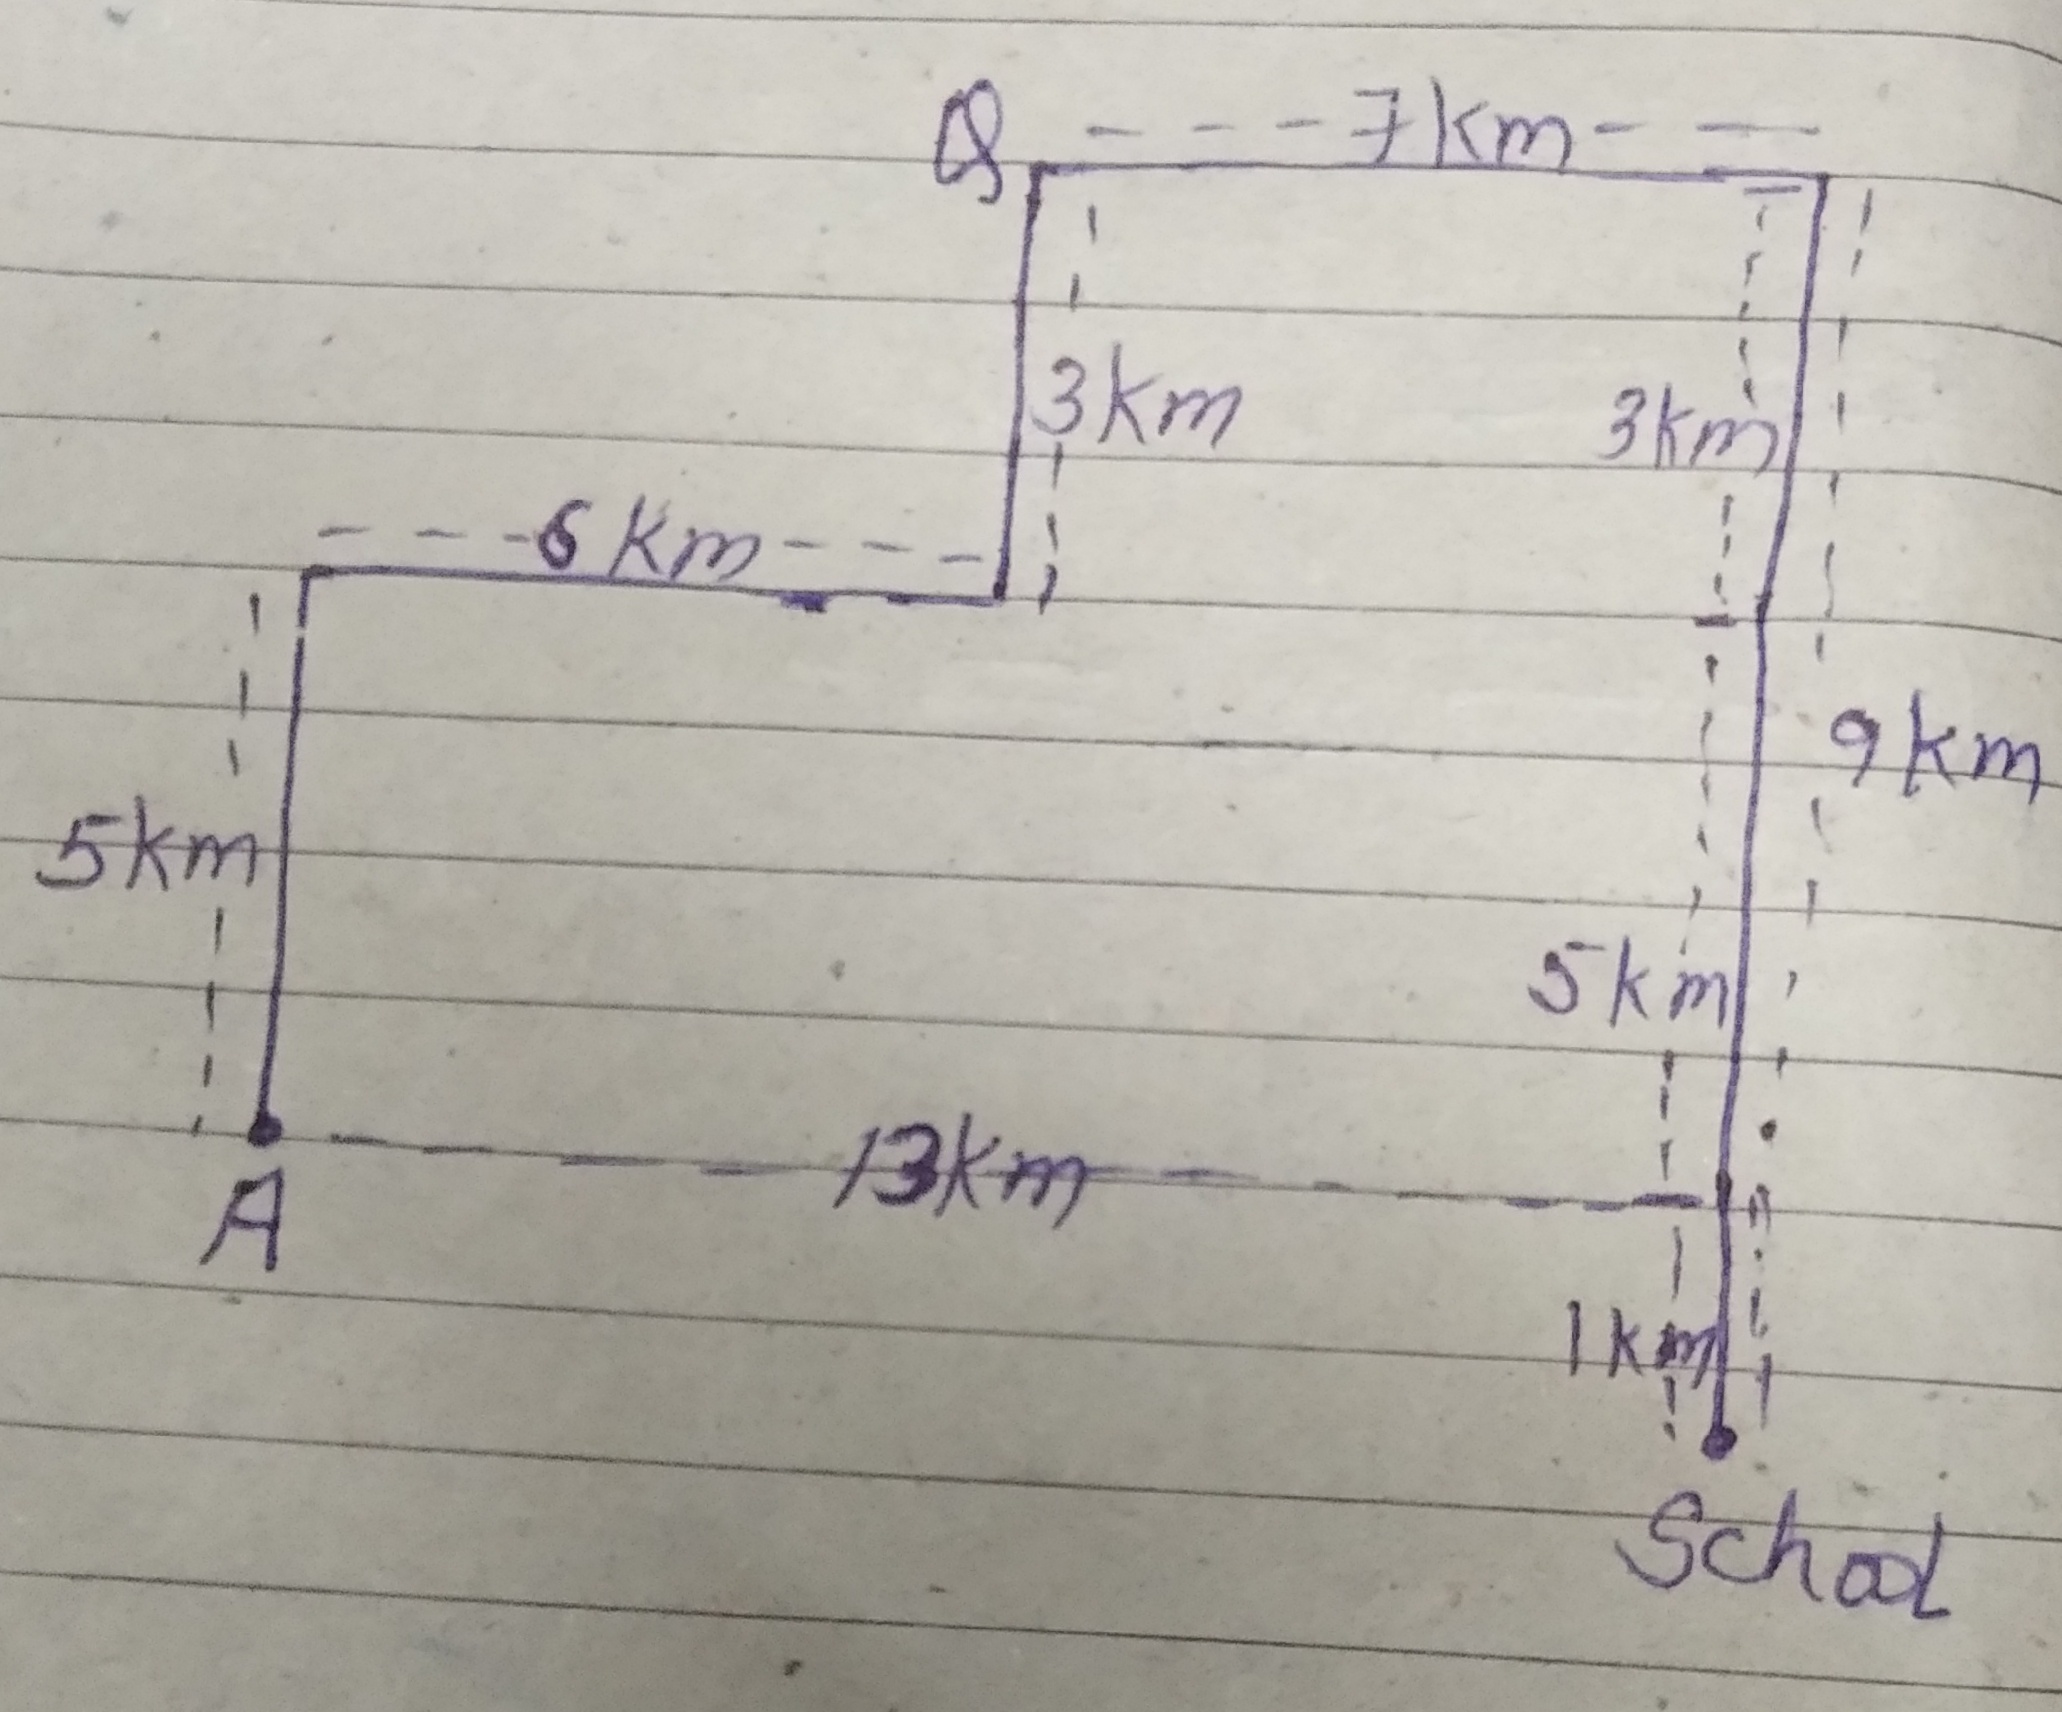 Q
7km
3km
3km
6 km
9 km
5km
5km
13km
A
1km
School